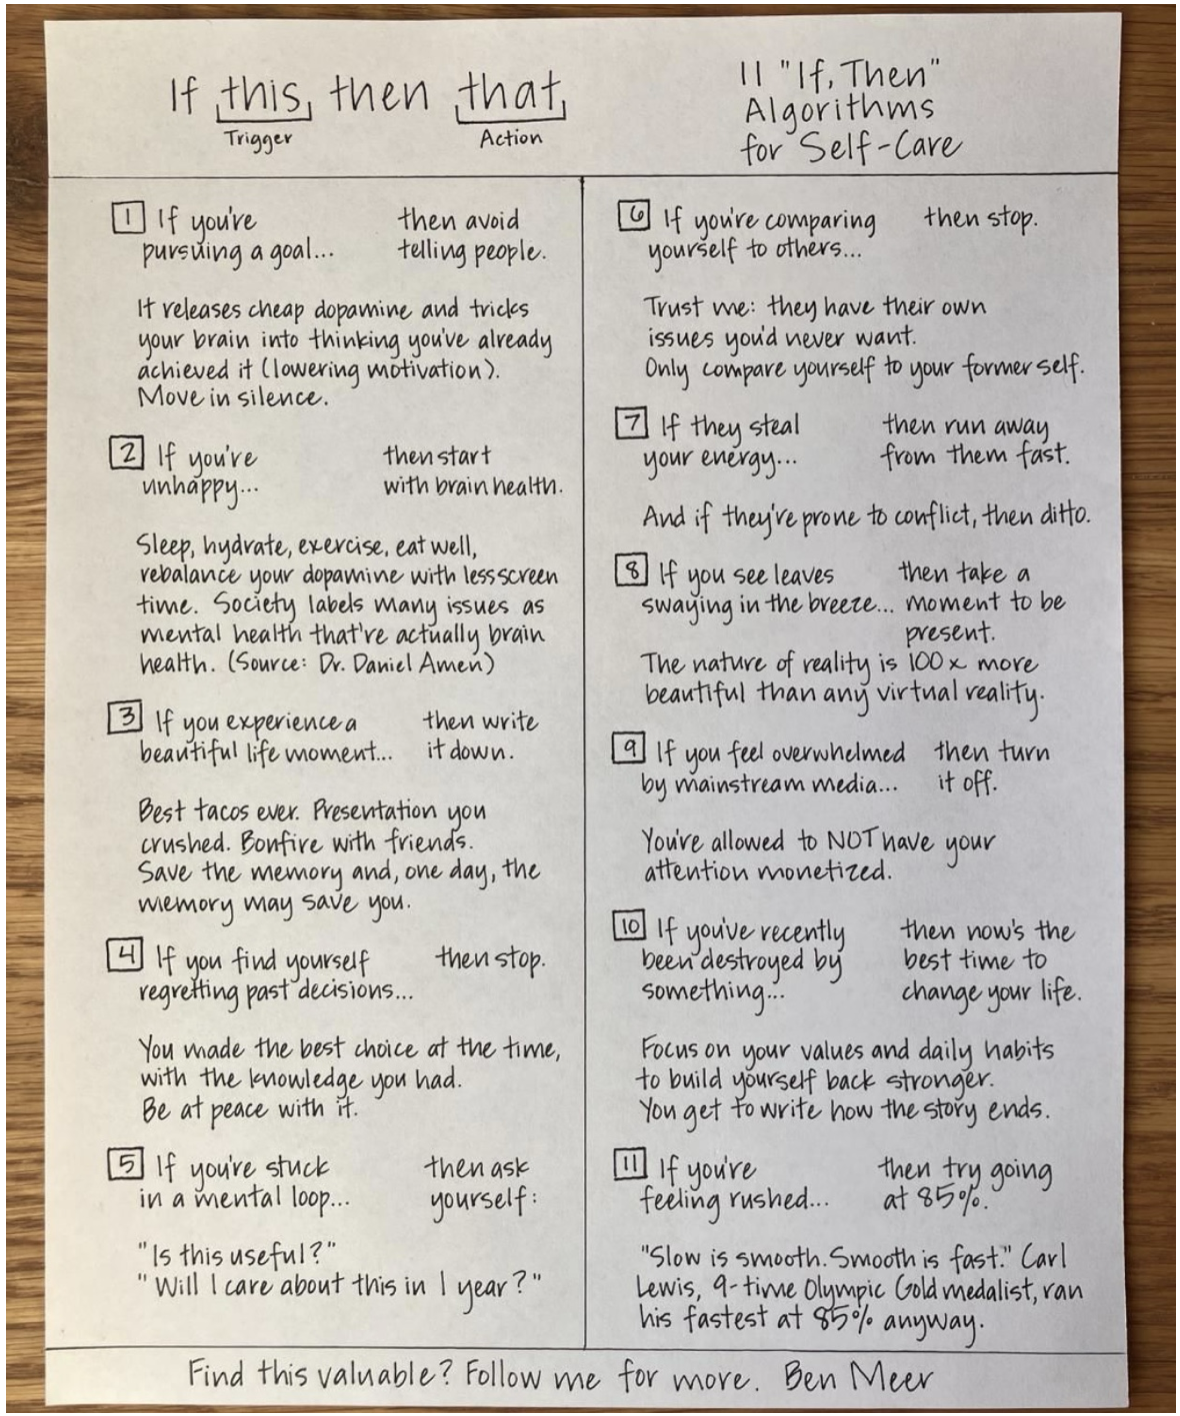 If this, then that,
Trigger
Action
11 "If, Then"
Algorithms
for Self-Care
1 If you're then avoid
pursuing a goal... telling people.
It releases cheap dopamine and tricks
your brain into thinking you've already
achieved it (lowering motivation).
Move in silence.
2 If you're then start
unhappy... with brain health.
Sleep, hydrate, exercise, eat well,
rebalance your dopamine with less screen
time. Society labels many issues as
mental health that're actually brain
health. (Source: Dr. Daniel Amen)
3 If you experience a then write
beautiful life moment... it down.
Best tacos ever. Presentation you
crushed. Bonfire with friends.
Save the memory and, one day, the
memory may save you.
4 If you find yourself then stop.
regretting past decisions...
You made the best choice at the time,
with the knowledge you had.
Be at peace with it.
5 If you're stuck then ask
in a mental loop... yourself:
"Is this useful?"
"Will I care about this in 1 year?"
6 If you're comparing then stop.
yourself to others...
Trust me: they have their own
issues you'd never want.
Only compare yourself to your former self.
7 If they steal then run away
your energy... from them fast.
And if they're prone to conflict, then ditto.
8 If you see leaves then take a
swaying in the breeze... moment to be
present.
The nature of reality is 100x more
beautiful than any virtual reality.
9 If you feel overwhelmed then turn
by mainstream media... it off.
You're allowed to NOT have your
attention monetized.
10 If you've recently then now's the
been destroyed by best time to
something... change your life.
Focus on your values and daily habits
to build yourself back stronger.
You get to write how the story ends.
11 If you're then try going
feeling rushed... at 85%.
"Slow is smooth. Smooth is fast." Carl
Lewis, 9-time Olympic Gold medalist, ran
his fastest at 85% anyway.
Find this valuable? Follow me for more. Ben Meer